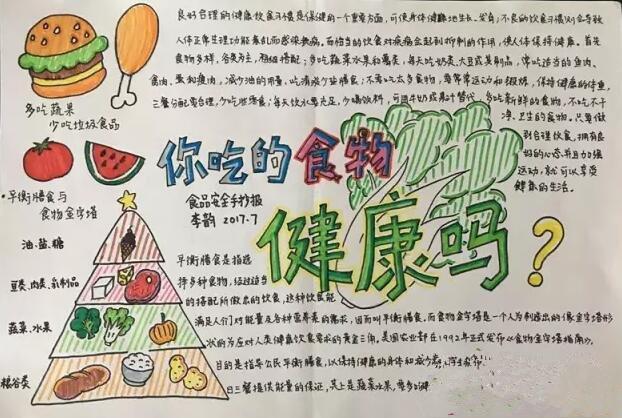 良好合理的健康饮食习惯是保健的一个重要方面,可使身体健康地生长、发育;不良的饮食习惯则会导致
人体正常生理功能紊乱而感染疾病。而恰当的饮食对疾病会起到抑制的作用,使人体保持健康。首先
食物多样,谷类为主,粗细搭配;多吃蔬菜水果和薯类,每天吃奶类、大豆或其制品,常吃适当的鱼肉、
禽肉、蛋和瘦肉,减少油的用量,吃清淡少盐膳食;不需吃太多食物,要常常运动和锻炼,保持健康的体重,
三餐分配要合理,少吃些零食;每天饮水要充足,少喝饮料,可用牛奶或果汁替代。多吃新鲜的食物,不吃不干
净、卫生的食物。只要做
到合理饮食,拥有良
好的心态并且加强
运动,就可以享受
健康的生活。
多吃蔬果
少吃垃圾食品
你吃的食物
健康吗?
食品安全手抄报
李韵 2017.7
平衡膳食与
食物金字塔
油、盐、糖
豆类、肉类、乳制品
蔬菜、水果
粮谷类
平衡膳食是指选
择多种食物,经过适当
的搭配所做出的饮食,这种饮食能
满足人们对能量及各种营养素的需求,因而叫平衡膳食。而食物金字塔是一个人为制造出的像金字塔形
状的为应对人类健康饮食需求的黄金三角,美国农业部在1992年正式发布以食物金字塔指南,
目的是指导公民平衡膳食,以保持健康的身体和减少
日三餐提供能量的保证,其上是蔬菜水果,